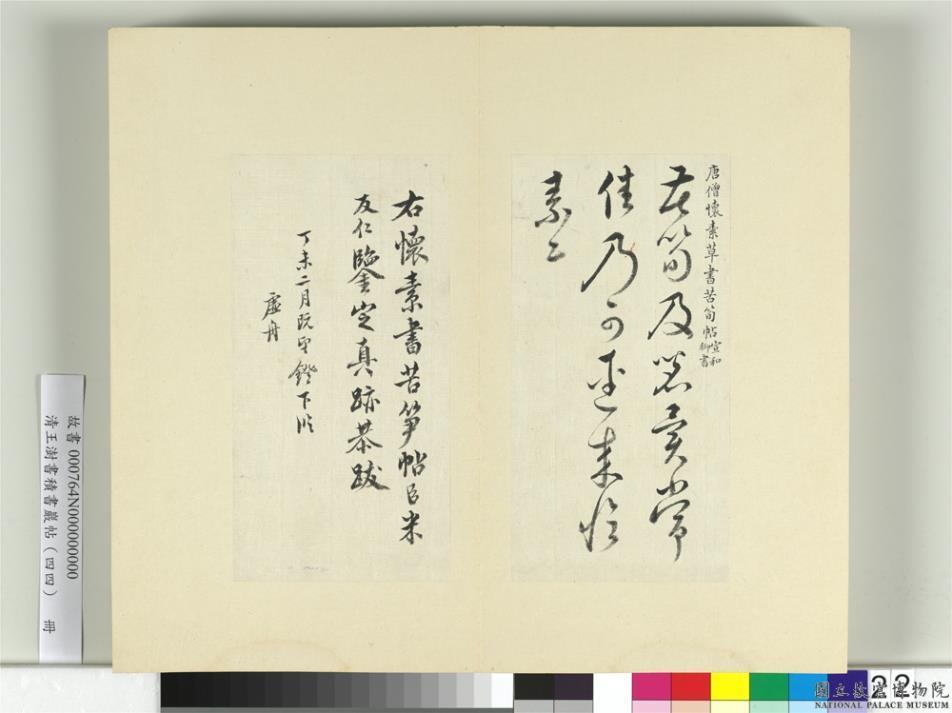 唐僧懷素草書苦筍帖宣和御書
苦筍及茗異常
佳乃可逕來
素上
右懷素書苦筍帖臣米
友仁鑒定真跡恭跋
丁未二月既望鐙下臨
虛舟
故書 000764N000000000
清王澍書積書巖帖（四四） 冊
22
國立故宮博物院
NATIONAL PALACE MUSEUM